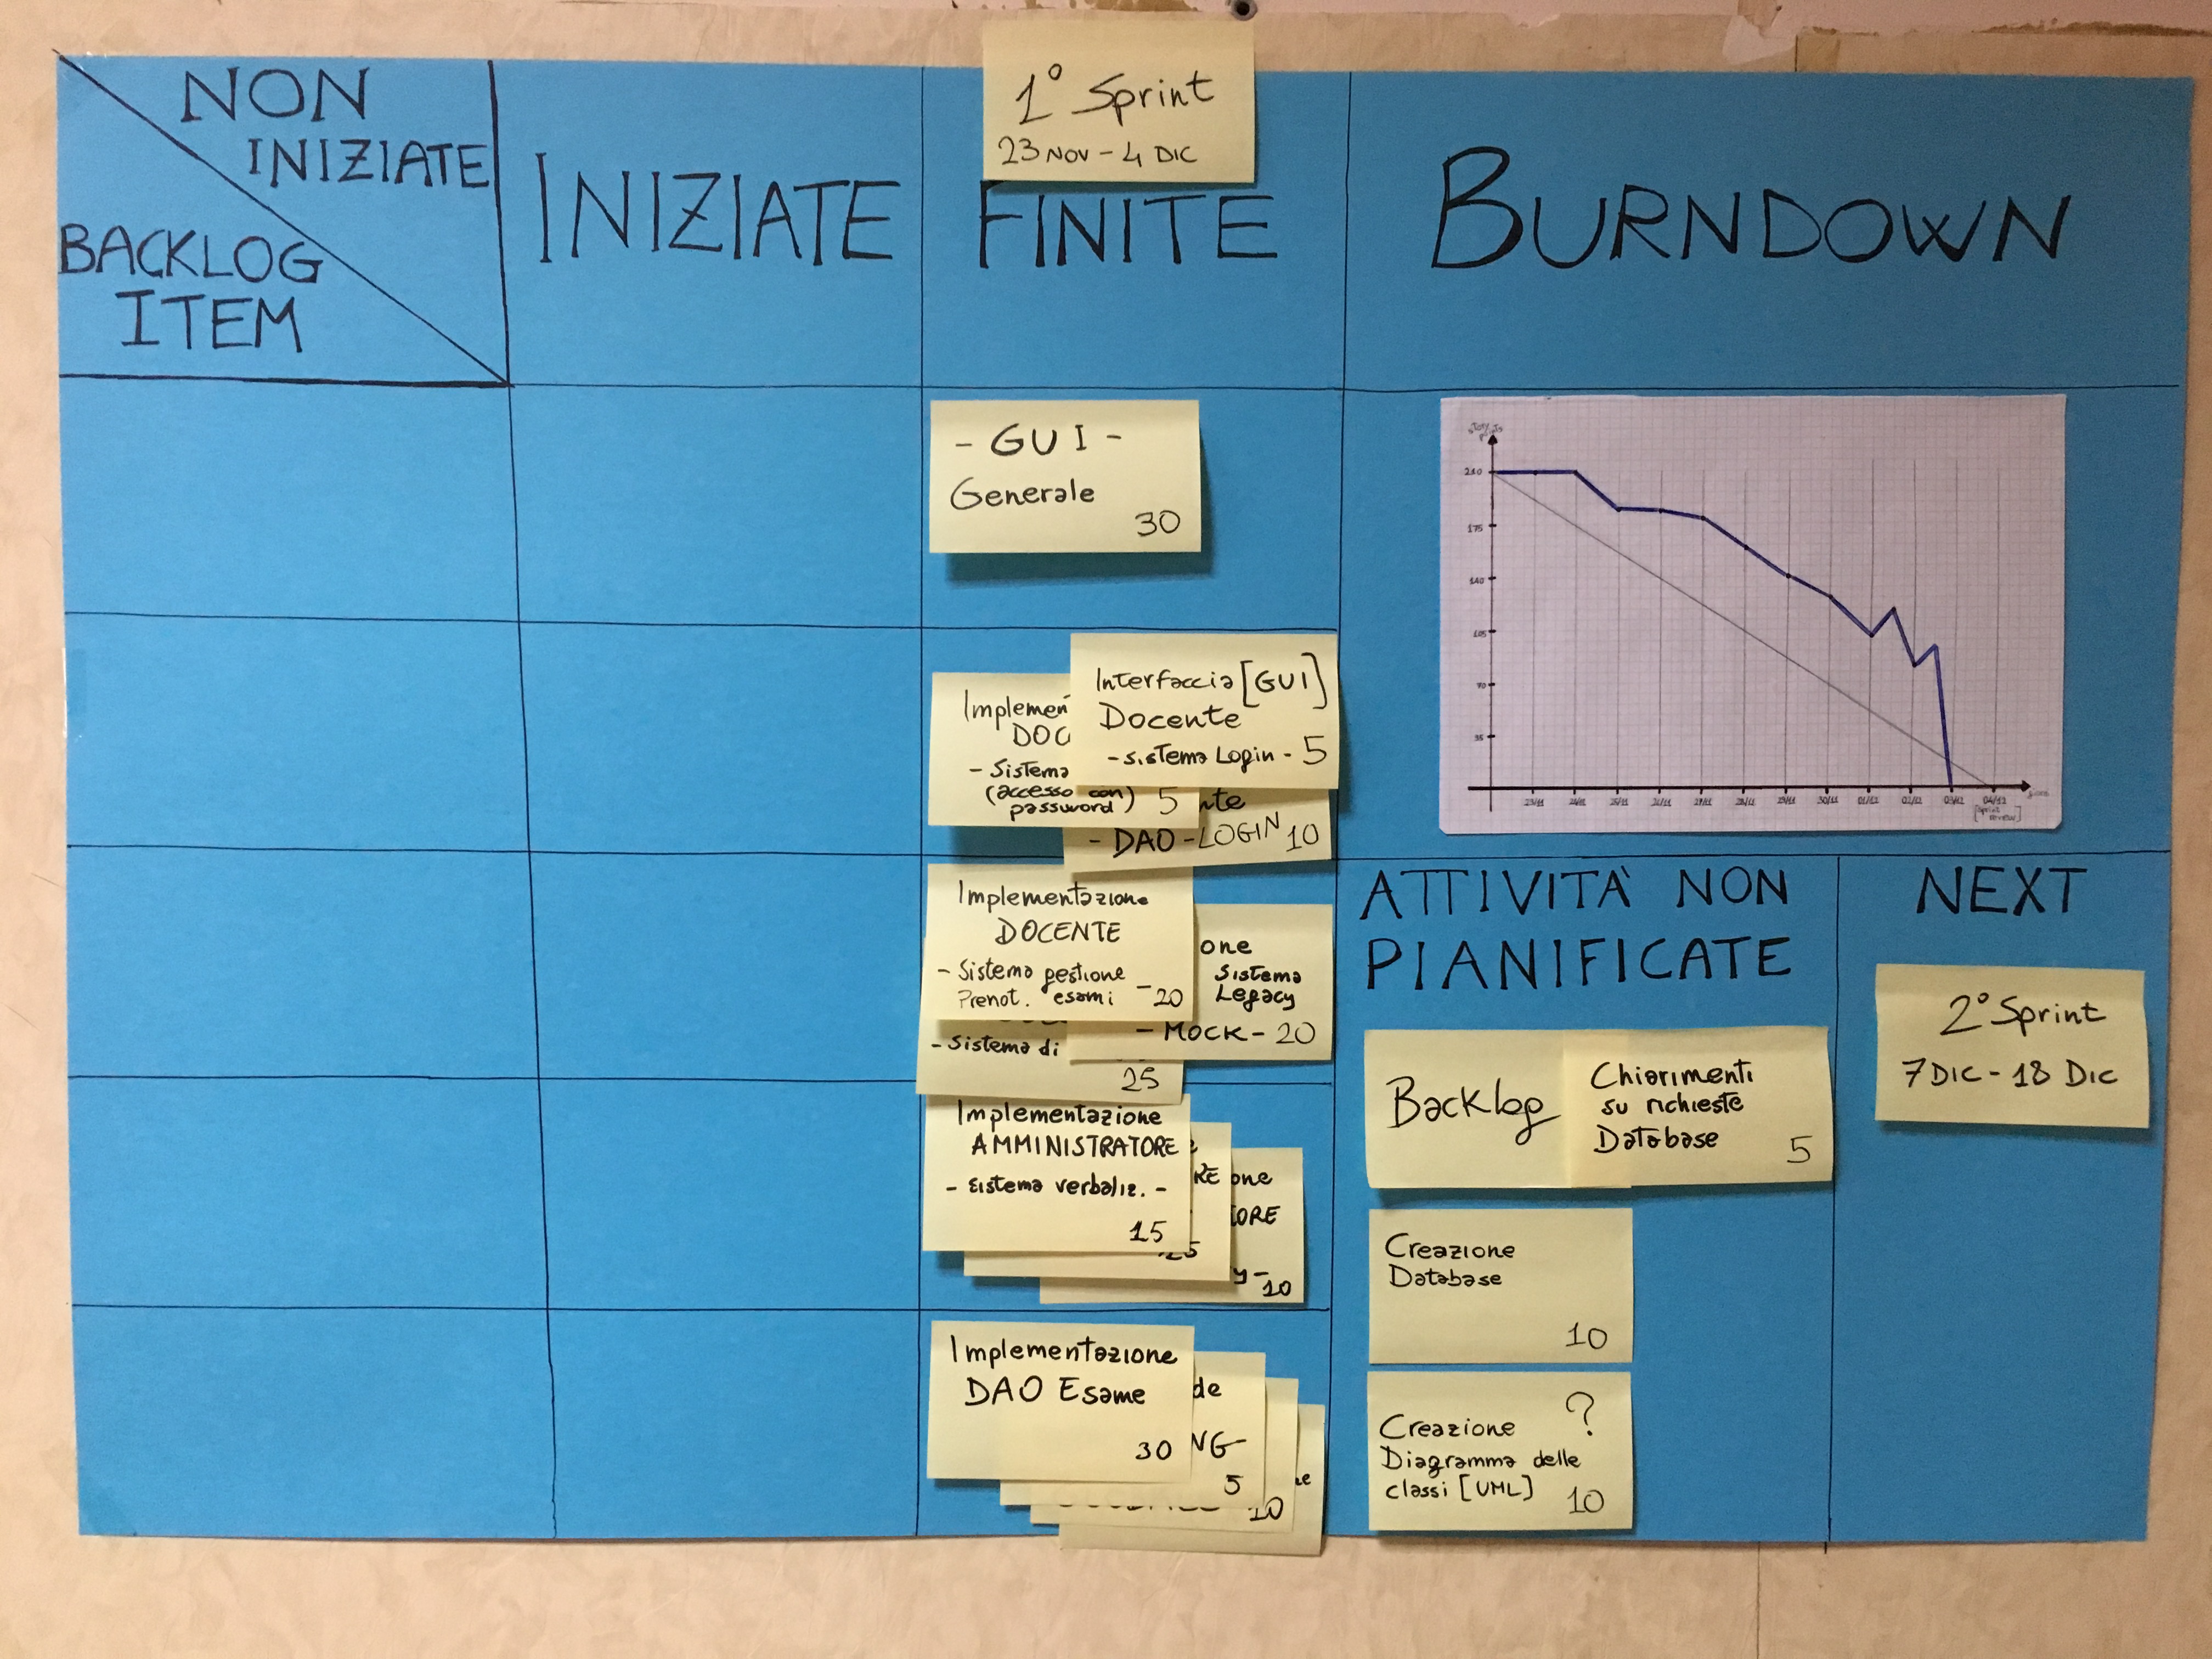 NON
INIZIATE
BACKLOG
ITEM
INIZIATE
1° Sprint
23 NOV - 4 DIC
FINITE
BURNDOWN
- GUI -
Generale
30
Interfaccia [GUI]
Docente
- sistema Login - 5
Implemen
DOC
- Sistema
(accesso con)
password 5
nte
- DAO - LOGIN 10
Implementazione
DOCENTE
- Sistema gestione
Prenot. esami - 20
one
Sistema
Legacy
- MOCK - 20
- Sistema di
25
Implementazione
AMMINISTRATORE
- sistema verbaliz. -
15
RE
25
one
TORE
y - 10
Implementazione
DAO Esame
30
de
NG -
5
10
ne
210
175
140
105
70
35
23/11
24/11
25/11
26/11
27/11
28/11
29/11
30/11
01/12
02/12
03/12
04/12
[sprint
review]
ATTIVITÀ NON
PIANIFICATE
Backlog
Chiarimenti
su richieste
Database
5
Creazione
Database
10
?
Creazione
Diagramma delle
classi [UML] 10
NEXT
2° Sprint
7 DIC - 18 DIC